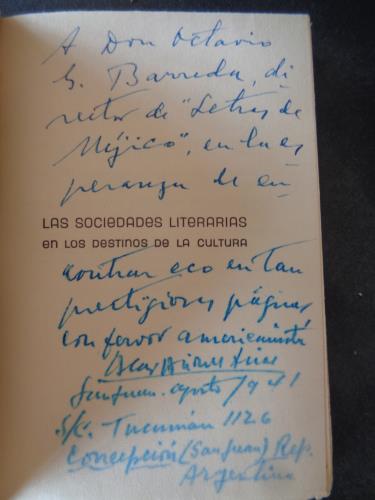 A Don Octavio
G. Barreda, di
rector de "Letras de
Méjico", en la es
peranza de en
LAS SOCIEDADES LITERARIAS
EN LOS DESTINOS DE LA CULTURA
contrar eco en tan
prestigiosas páginas,
con fervor americanista
San Juan. agosto/941
S/C. Tucumán 1126
Concepción (San Juan) Rep.
Argentina